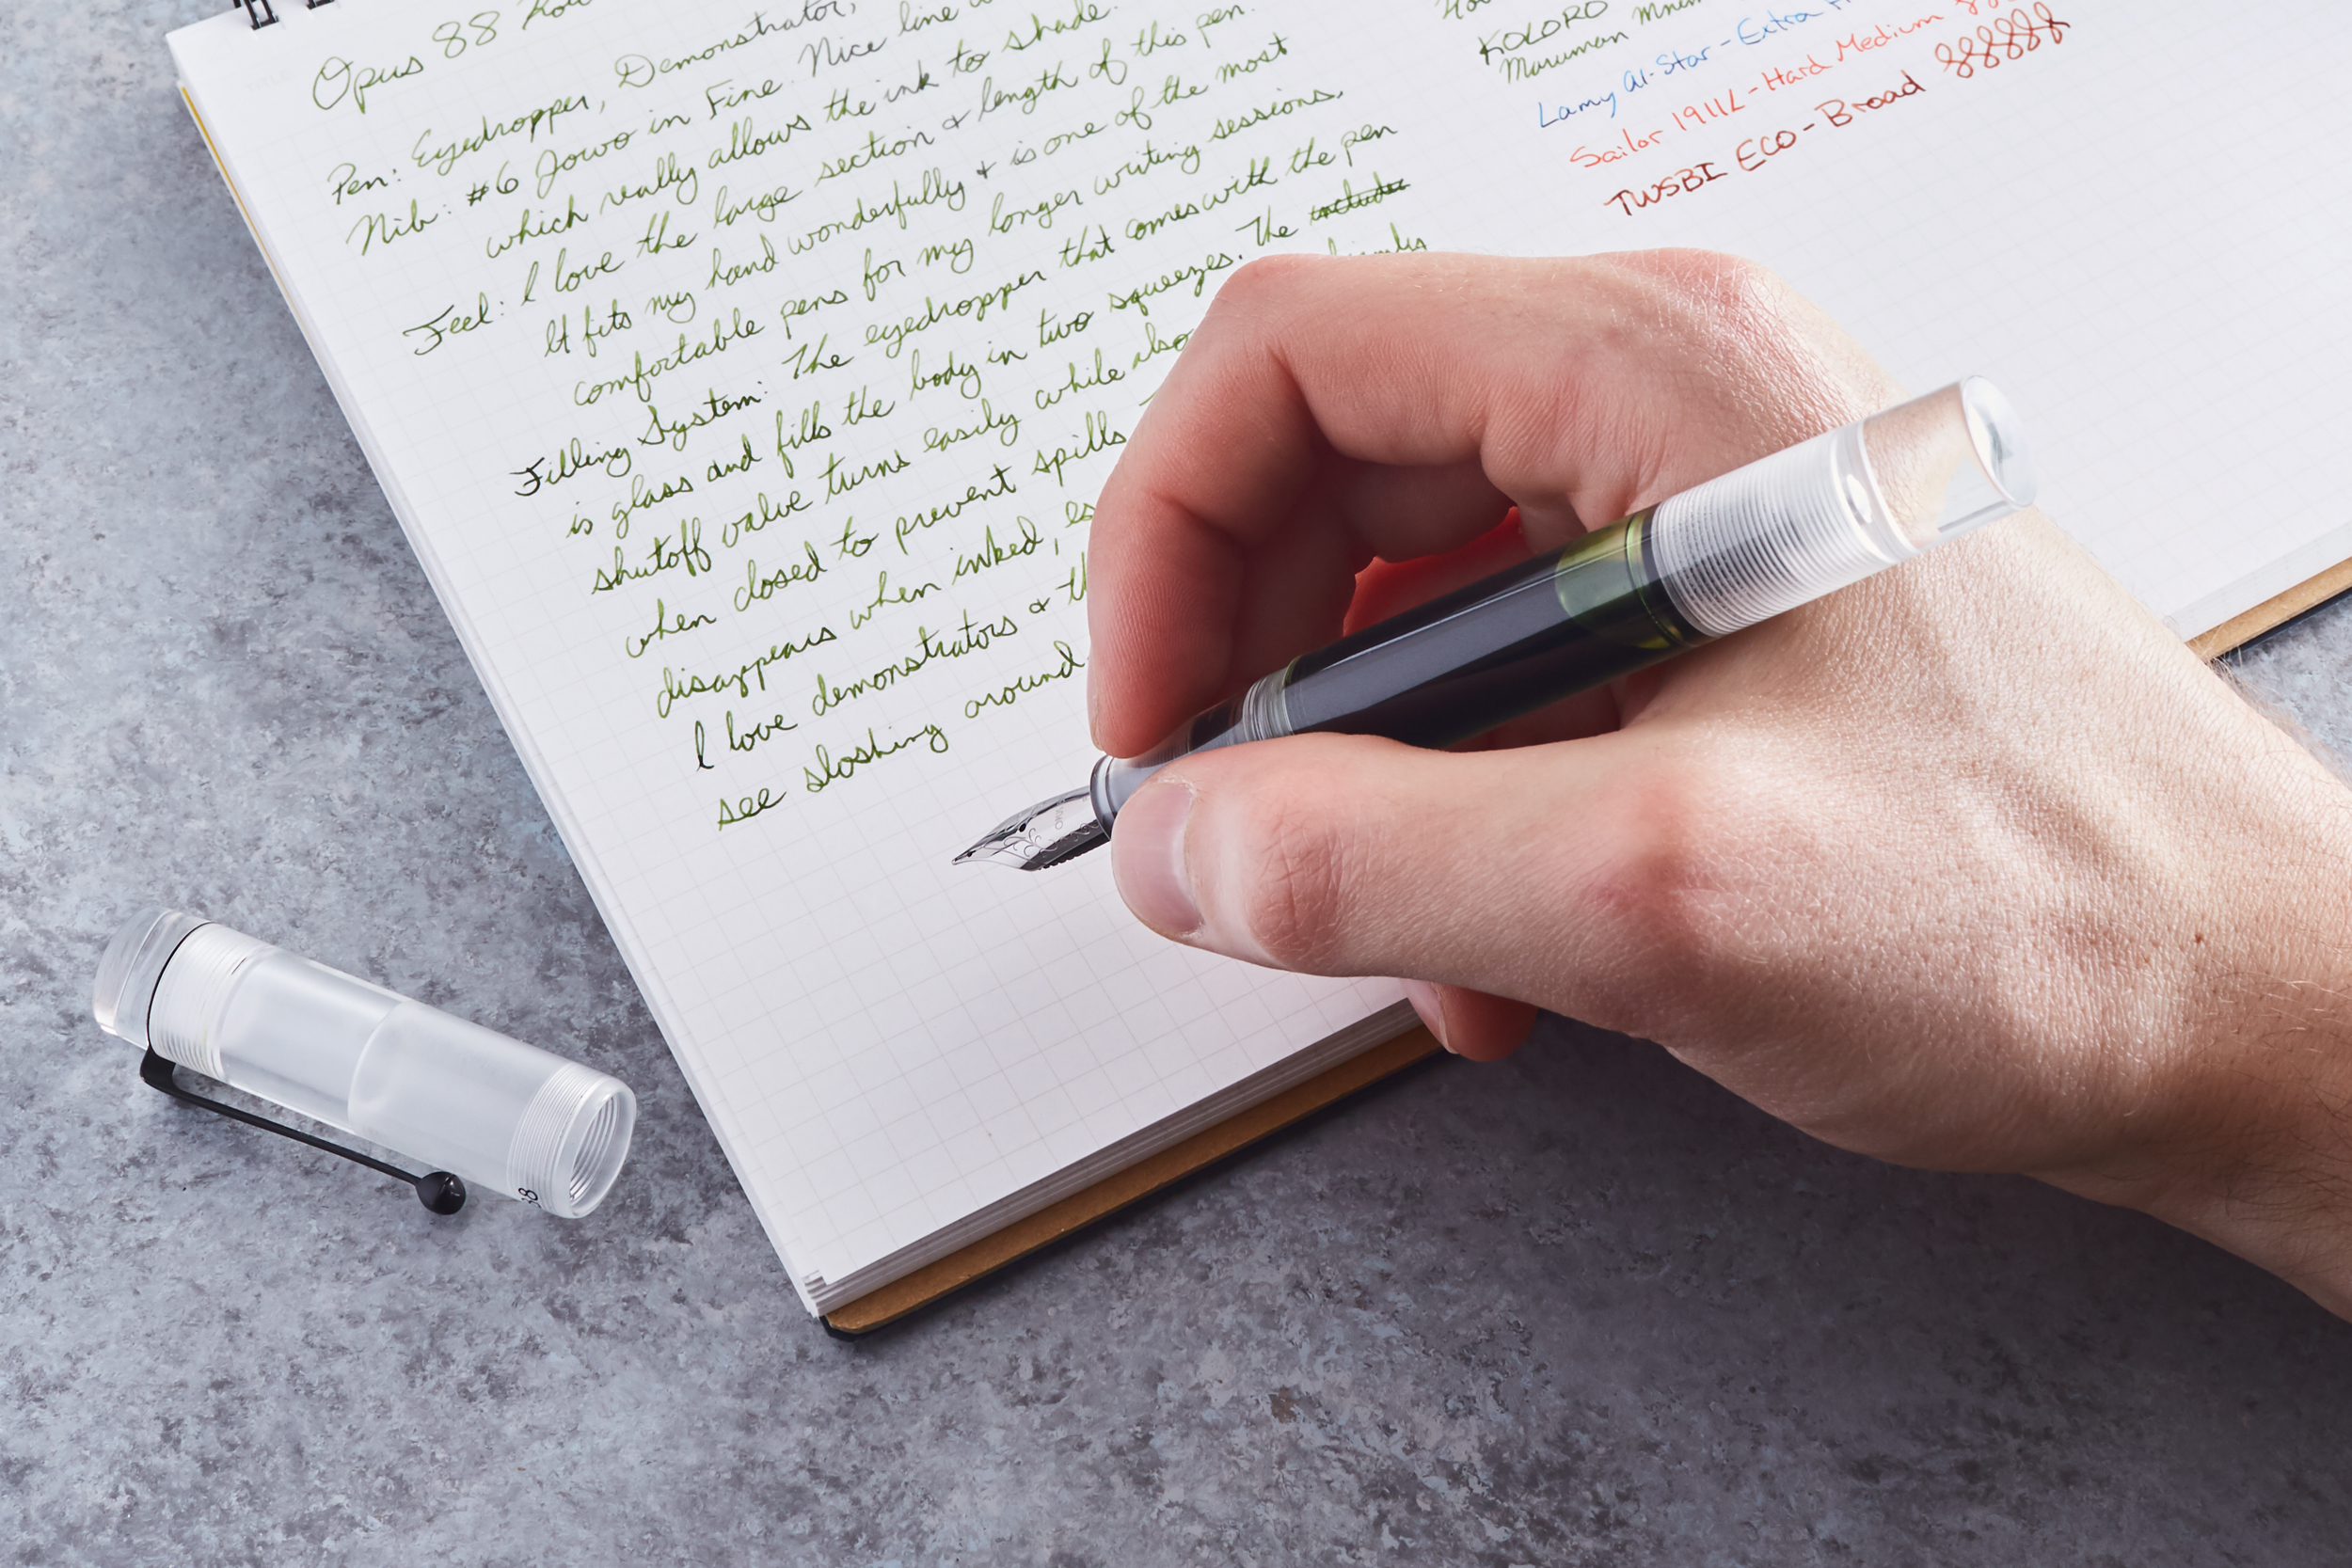 Opus 88
Pen: Eyedropper, Demonstrator,
Nib: #6 Jowo in Fine. Nice line
which really allows the ink to shade.
Feel: I love the large section & length of this pen.
It fits my hand wonderfully & is one of the most
comfortable pens for my longer writing sessions.
Filling System: The eyedropper that comes with the pen
is glass and fills the body in two squeezes. The
shutoff valve turns easily while also
when closed to prevent spills
disappears when inked,
I love demonstrators &
see sloshing around
KOLORO
Maruman
Lamy Al-Star - Extra
Sailor 1911L - Hard Medium
TWSBI ECO - Broad